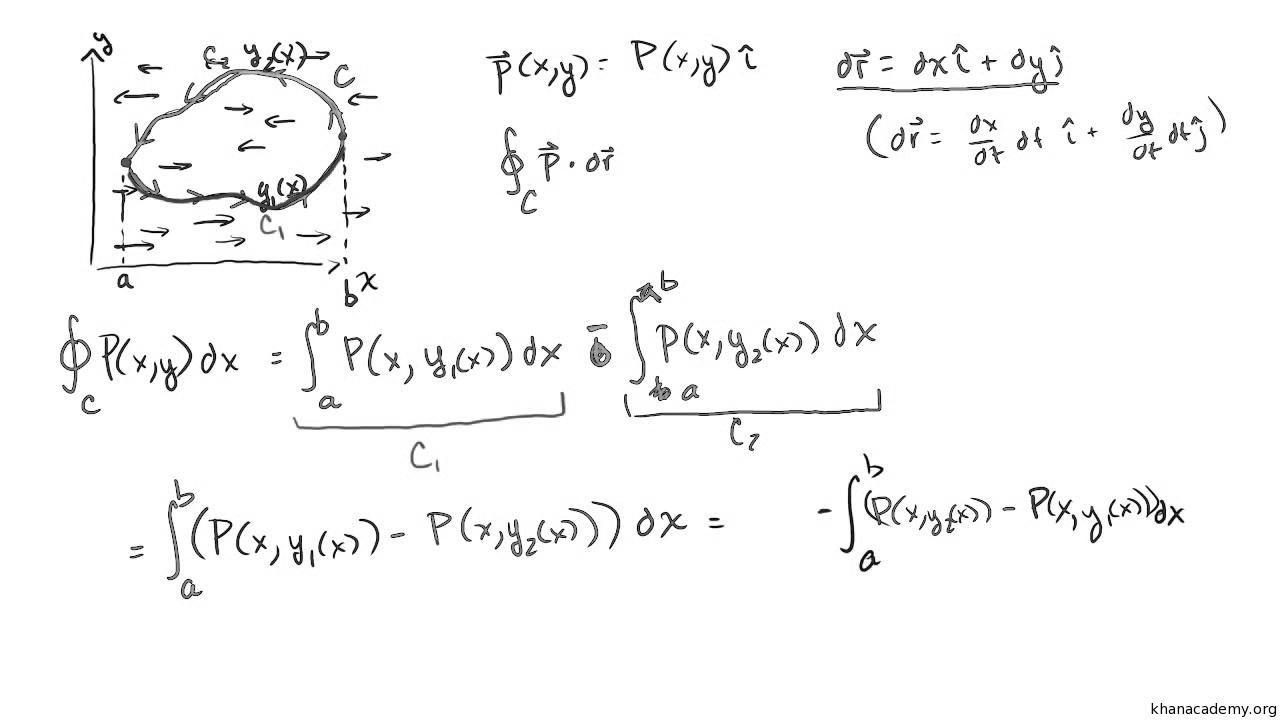 y
C₂ y₂(x)
C
y₁(x)
C₁
a
b x
P⃗(x,y) = P(x,y) î
∮_C P⃗ · dr⃗
dr⃗ = dx î + dy ĵ
(dr⃗ = dx/dt dt î + dy/dt dt ĵ)
∮_C P(x,y) dx = ∫_a^b P(x, y₁(x)) dx - ∫_a^b P(x, y₂(x)) dx
C₁ C₂
= ∫_a^b (P(x, y₁(x)) - P(x, y₂(x))) dx = - ∫_a^b (P(x, y₂(x)) - P(x, y₁(x))) dx
khanacademy.org